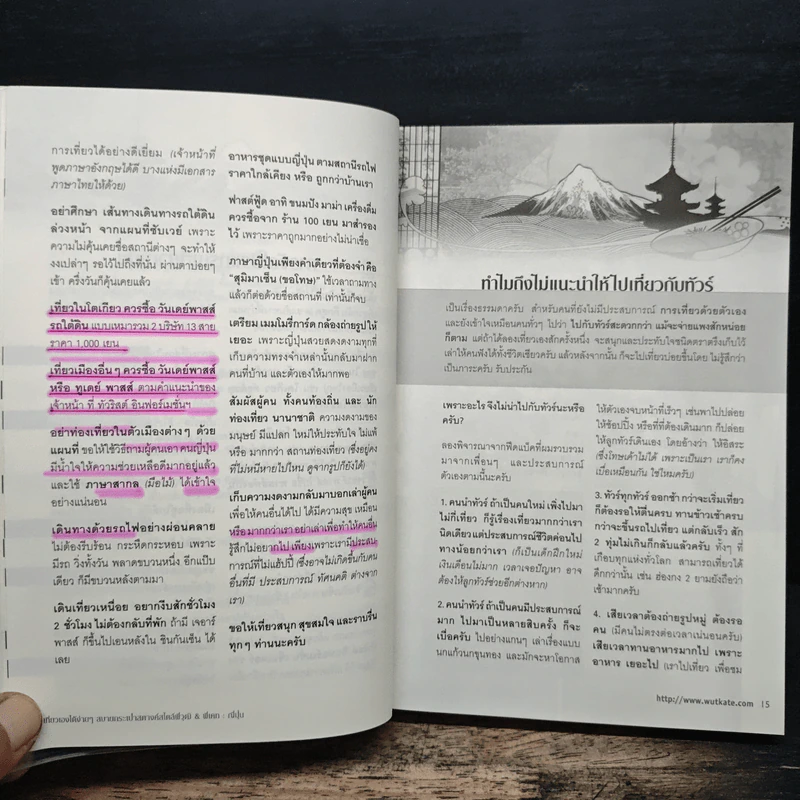 การเที่ยวได้อย่างดีเยี่ยม (เจ้าหน้าที่
พูดภาษาอังกฤษได้ดี บางแห่งมีเอกสาร
ภาษาไทยให้ด้วย)
อย่าศึกษา เส้นทางเดินทางรถใต้ดิน
ล่วงหน้า จากแผนที่ซับเวย์ เพราะ
ความไม่คุ้นเคยชื่อสถานีต่างๆ จะทำให้
งงเปล่าๆ รอไว้ไปถึงที่นั่น ผ่านตาบ่อยๆ
เข้า ครึ่งวันก็คุ้นเคยแล้ว
เที่ยวในโตเกียว ควรซื้อ วันเดย์พาสส์
รถใต้ดิน แบบเหมารวม 2 บริษัท 13 สาย
ราคา 1,000 เยน
เที่ยวเมืองอื่นๆ ควรซื้อ วันเดย์พาสส์
หรือ ทูเดย์ พาสส์ ตามคำแนะนำของ
เจ้าหน้าที่ ที่ ทัวริสต์ อินฟอร์เมชั่นฯ
อย่าท่องเที่ยวในตัวเมืองต่างๆ ด้วย
แผนที่ ขอให้ใช้วิธีถามผู้คนเอา คนญี่ปุ่น
มีน้ำใจให้ความช่วยเหลือดีมากอยู่แล้ว
และใช้ ภาษาสากล (มือไม้) ได้เข้าใจ
อย่างแน่นอน
เดินทางด้วยรถไฟอย่างผ่อนคลาย
ไม่ต้องรีบร้อน กระหืดกระหอบ เพราะ
มีรถ วิ่งทั้งวัน พลาดขบวนหนึ่ง อีกแป๊บ
เดียว ก็มีขบวนหลังตามมา
เดินเที่ยวเหนื่อย อยากงีบสักชั่วโมง
2 ชั่วโมง ไม่ต้องกลับที่พัก ถ้ามี เจอาร์
พาสส์ ก็ขึ้นไปเอนหลังใน ชินกันเซ็น ได้
เลย
อาหารชุดแบบญี่ปุ่น ตามสถานีรถไฟ
ราคาใกล้เคียง หรือ ถูกกว่าบ้านเรา
ฟาสต์ฟู้ด อาทิ ขนมปัง มาม่า เครื่องดื่ม
ควรซื้อจาก ร้าน 100 เยน มาสำรอง
ไว้ เพราะราคาถูกมากอย่างไม่น่าเชื่อ
ภาษาญี่ปุ่นเพียงคำเดียวที่ต้องจำ คือ
"สุมิมาเซ็น (ขอโทษ)" ใช้เวลาถามทาง
แล้วก็ต่อด้วยชื่อสถานที่ เท่านั้นก็จบ
เตรียม เมมโมรี่การ์ด กล้องถ่ายรูปให้
เยอะ เพราะญี่ปุ่นสวยสดงดงามทุกที่
เก็บความทรงจำเหล่านั้นกลับมาฝาก
คนที่บ้าน และตัวเองให้มากพอ
สัมผัสผู้คน ทั้งคนท้องถิ่น และ นัก
ท่องเที่ยว นานาชาติ ความงดงามของ
มนุษย์ มีแปลก ใหม่ให้ประทับใจ ไม่แพ้
หรือ มากกว่า สถานท่องเที่ยว (ซึ่งอยู่คง
ที่ไม่หนีหายไปไหน ดูจากรูปก็ยังได้)
เก็บความงดงามกลับมาบอกเล่าผู้คน
เพื่อให้คนอื่นได้ไป ได้มีความสุข เหมือน
หรือมากกว่าเรา อย่าเล่าเพื่อทำให้คนอื่น
รู้สึกไม่อยากไป เพียงเพราะเรามีประสบ-
การณ์ที่ไม่แฮ้ปปี้ (ซึ่งอาจไม่เกิดขึ้นกับคน
อื่นที่มี ประสบการณ์ ทัศนคติ ต่างจาก
เรา)
ขอให้เที่ยวสนุก สุขสมใจ และราบรื่น
ทุกๆ ท่านนะครับ
เที่ยวเองได้ง่ายๆ สบายกระเป๋าสตางค์สไตล์พี่วุฒิ & พี่เคท : ญี่ปุ่น
ทำไมถึงไม่แนะนำให้ไปเที่ยวกับทัวร์
เป็นเรื่องธรรมดาครับ สำหรับคนที่ยังไม่มีประสบการณ์ การเที่ยวด้วยตัวเอง
และยังเข้าใจเหมือนคนทั่วๆ ไปว่า ไปกับทัวร์สะดวกกว่า แม้จะจ่ายแพงสักหน่อย
ก็ตาม แต่ถ้าได้ลองเที่ยวเองสักครั้งหนึ่ง จะสนุกและประทับใจชนิดตราตรึงเก็บไว้
เล่าให้คนฟังได้ทั้งชีวิตเชียวครับ แล้วหลังจากนั้น ก็จะไปเที่ยวบ่อยขึ้นโดย ไม่รู้สึกว่า
เป็นภาระครับ รับประกัน
เพราะอะไร จึงไม่น่าไปกับทัวร์นะหรือ
ครับ?
ลองพิจารณาจากฟีดแบ็คที่ผมรวบรวม
มาจากเพื่อนๆ และประสบการณ์
ตัวเองตามนี้นะครับ
1. คนนำทัวร์ ถ้าเป็นคนใหม่ เพิ่งไปมา
ไม่กี่เที่ยว ก็รู้เรื่องเที่ยวมากกว่าเรา
นิดเดียวแต่ประสบการณ์ชีวิตค่อนไป
ทางน้อยกว่าเรา (ก็เป็นเด็กฝึกใหม่
เงินเดือนไม่มาก เวลาเจอปัญหา อาจ
ต้องให้ลูกทัวร์ช่วยอีกต่างหาก)
2. คนนำทัวร์ ถ้าเป็นคนมีประสบการณ์
มาก ไปมาเป็นหลายสิบครั้ง ก็จะ
เบื่อครับ ไปอย่างแกนๆ เล่าเรื่องแบบ
นกแก้วนกขุนทอง และมักจะหาโอกาส
ให้ตัวเองจบหน้าที่เร็วๆ เช่นพาไปปล่อย
ให้ช้อปปิ้ง หรือที่ที่ต้องเดินมาก ก็ปล่อย
ให้ลูกทัวร์เดินเอง โดยอ้างว่า ให้อิสระ
(ซึ่งโทษเค้าไม่ได้ เพราะเป็นเรา เราก็คง
เบื่อเหมือนกัน ใช่ไหมครับ)
3. ทัวร์ทุกทัวร์ ออกช้า กว่าจะเริ่มเที่ยว
ก็ต้องรอให้ตื่นครบ ทานข้าวเช้าครบ
กว่าจะขึ้นรถไปเที่ยว แต่กลับเร็ว สัก
2 ทุ่มไม่เกินก็กลับแล้วครับ ทั้งๆ ที่
เกือบทุกแห่งทั่วโลก สามารถเที่ยวได้
ดึกกว่านั้น เช่น ฮ่องกง 2 ยามยังถือว่า
เช้ามากครับ
4. เสียเวลาต้องถ่ายรูปหมู่ ต้องรอ
คน (มีคนไม่ตรงต่อเวลาเน่นอนครับ)
เสียเวลาทานอาหารมากไป เพราะ
อาหาร เยอะไป (เราไปเที่ยว เพื่อชม
http://www.wutkate.com 15